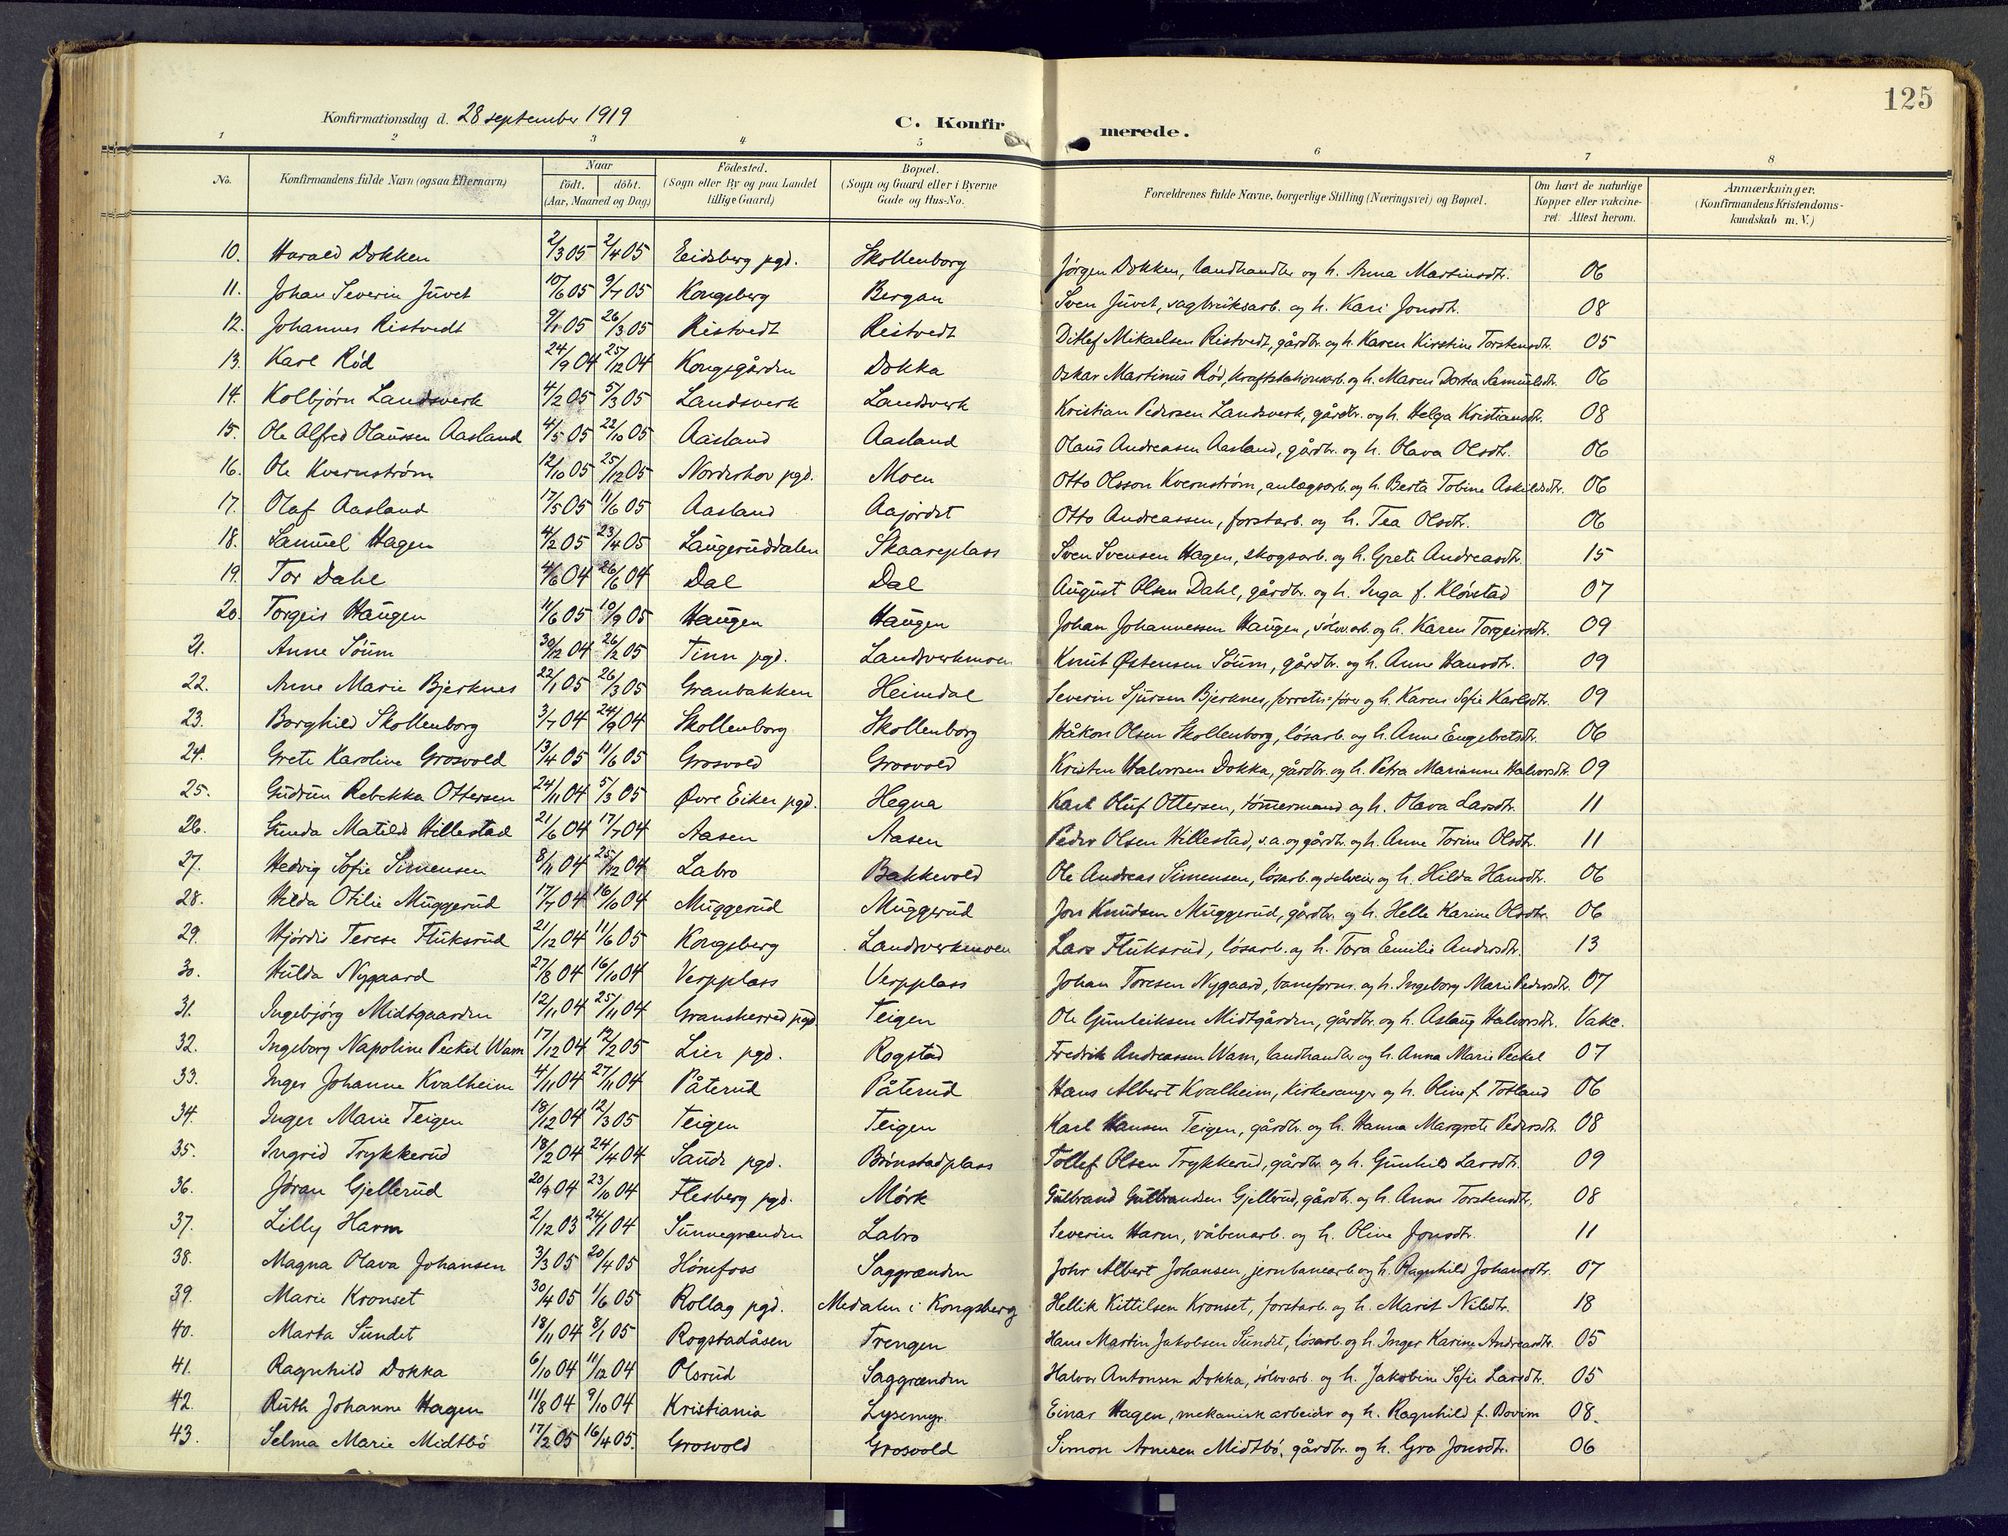 125
Konfirmationsdag d. 28 september 1919
C. Konfirmerede.
1 2 3 4 5 6 7 8
No. | Konfirmandens fulde Navn (ogsaa Efternavn) | Naar födt. döbt. (Aar, Maaned og Dag) | Födested. (Sogn eller By og paa Landet tillige Gaard) | Bopæl. (Sogn og Gaard eller i Byerne Gade og Hus-No. | Forældrenes fulde Navne, borgerlige Stilling (Næringsvei) og Bopæl. | Om havt de naturlige Kopper eller vakcineret. Attest herom. | Anmærkninger. (Konfirmandens Kristendomskundskab m. V.)
10. Harald Dokken 2/3 05 2/4 05 Eidsberg pgd. Skollenborg Jørgen Dokken, landhandler og h. Anna Martinsdtr. 06
11. Johan Severin Juvet 10/6 05 9/7 05 Kongsberg Bergan Sven Juvet, sagbruksarb. og h. Kari Jonsdtr. 08
12. Johannes Ristvedt 9/1 05 26/3 05 Ristvedt Ristvedt Ditlef Mikaelsen Ristvedt, gårdbr. og h. Karen Kirstine Torstensdtr. 05
13. Karl Rød 24/9 04 25/12 04 Kongsgården Dokka Oskar Martinus Rød, kraftstationsarb. og h. Maren Dortea Samuelsdtr. 06
14. Kolbjørn Landsverk 4/2 05 5/3 05 Landsverk Landsverk Kristian Pedersen Landsverk, gårdbr. og h. Helga Kristiansdtr. 08
15. Ole Alfred Olaussen Aasland 4/5 05 22/10 05 Aasland Aasland Olaus Andreasen Aasland, gårdbr. og h. Olava Olsdtr. 06
16. Ole Kvernstrøm 12/10 05 25/12 05 Norderhov pgd. Moen Otto Olsson Kvernstrøm, anlægsarb. og h. Berta Tobine Askildsdtr. 06
17. Olaf Aasland 17/5 05 11/6 05 Aasland Aajordet Otto Andreassen, forstarb. og h. Tea Olsdtr. 06
18. Samuel Hagen 4/2 05 23/4 05 Laugeruddalen Skaareplass Sven Svensen Hagen, skogsarb. og h. Grete Andreasdtr. 15
19. Tor Dahl 4/6 04 26/6 04 Dal Dal August Olsen Dahl, gårdbr. og h. Inga f. Kløvstad 07
20. Torgeir Haugen 11/6 05 10/9 05 Haugen Haugen Johan Johannessen Haugen, sølvv.arb. og h. Karen Torgeirsdtr. 09
21. Anne Søum 30/12 04 26/2 05 Tinn pgd. Landsverkmoen Knut Østensen Søum, gårdbr. og h. Anne Hansdtr. 09
22. Anne Marie Bjerknes 22/1 05 26/3 05 Granbakken Heimdal Severin Sjursen Bjerknes, forretn.fører og h. Karen Sofie Karlsdtr. 09
23. Borghild Skollenborg 3/7 04 24/9 04 Skollenborg Skollenborg Håkon Olsen Skollenborg, løsarb. og h. Anne Engebretsdtr. 06
24. Grete Karoline Grosvold 13/4 05 11/6 05 Grosvold Grosvold Kristen Halvorsen Dokka, gårdbr. og h. Petra Marianne Halvorsdtr. 09
25. Gudrun Rebekka Ottersen 24/11 04 5/3 05 Øvre Eiker pgd. Hegna Karl Oluf Ottersen, tømermand og h. Olava Larsdtr. 11
26. Gunda Matilde Hillestad 21/6 04 17/7 04 Aasen Aasen Peder Olsen Hillestad, s.a. og gårdbr. og h. Anne Torine Olsdtr. 11
27. Hedvig Sofie Simensen 8/11 04 25/12 04 Labro Bakkevold Ole Andreas Simensen, løsarb. og selveier og h. Hilda Hansdtr. 06
28. Hilda Otilie Muggerud 17/7 04 16/10 04 Muggerud Muggerud Jon Knudsen Muggerud, gårdbr. og h. Helle Karine Olsdtr. 06
29. Hjørdis Terese Fluksrud 21/12 04 11/6 05 Kongsberg Landsverkmoen Lars Fluksrud, løsarb. og h. Tora Emilie Andersdtr. 13
30. Hulda Nygaard 27/8 04 16/10 04 Verpplass Verpplass Johan Toresen Nygaard, baneform. og h. Ingeborg Marie Pedersdtr. 07
31. Ingebjørg Midtgaarden 12/11 04 25/11 04 Gransherred pgd. Teigen Ole Gunleiksen Midtgården, gårdbr. og h. Aslaug Halvorsdtr. Vakc.
32. Ingeborg Napoline Peckel Wam 17/12 04 12/2 05 Lier pgd. Rogstad Fredrik Andreassen Wam, landhandler og h. Anna Marie Peckel 07
33. Inger Johanne Kvalheim 4/11 04 27/11 04 Påterud Påterud Hans Albert Kvalheim, kirkesanger og h. Oline f. Totland 06
34. Inger Marie Teigen 18/12 04 12/3 05 Teigen Teigen Karl Hansen Teigen, gårdbr. og h. Hanna Margrete Pedersdtr. 08
35. Ingrid Trykkerud 18/2 04 24/4 04 Saude pgd. Brønstadplass Tollef Olsen Trykkerud, gårdbr. og h. Gunhild Larsdtr. 09
36. Jøran Gjellerud 20/9 04 23/10 04 Flesberg pgd. Mørk Gulbrand Gulbrandsen Gjellerud, gårdbr. og h. Anne Torstensdtr. 08
37. Lilly Harm 2/12 03 24/1 04 Sunnegrænden Labro Severin Harm, våbenarb. og h. Oline Jonsdtr. 11
38. Magna Olava Johansen 3/3 05 20/4 05 Hønefoss Saggrænden Johs Albert Johansen, jernbanearb. og h. Ragnhild Johansdtr. 07
39. Marie Kronset 30/4 05 1/6 05 Rollag pgd. Medalen i Kongsberg Hellik Kittilsen Kronset, forstarb. og h. Marit Nilsdtr. 18
40. Marta Sundet 18/11 04 8/1 05 Rogstadåsen Trengen Hans Martin Jakobsen Sundet, løsarb. og h. Inger Karine Andreasdtr. 05
41. Ragnhild Dokka 6/10 04 11/12 04 Olsrud Saggrænden Halvor Antonsen Dokka, sølvv.arb. og h. Jakobine Sofie Larsdtr. 05
42. Ruth Johanne Hagen 11/8 04 9/10 04 Kristiania Lysemyr. Einar Hagen, mekanisk arbeider og h. Ragnhild f. Bovim 08.
43. Selma Marie Midtbø 17/2 05 16/4 05. Grosvold Grosvold Simon Arnesen Midtbø, gårdbr. og h. Gro Jonsdtr. 06